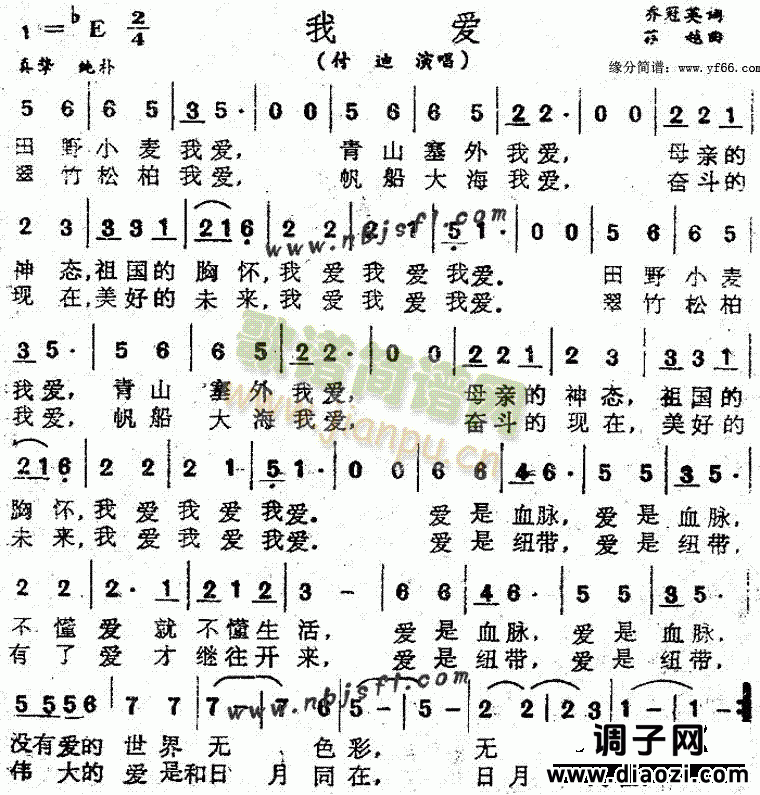 1=♭E 2/4 我爱 乔冠英词
(付迪演唱) 曲
真挚 纯朴 缘分简谱:www.yf66.com
5 6 | 6 5 | 3 5· | 0 0 | 5 6 | 6 5 | 2 2· | 0 0 | 2 2 1 |
田野小麦我爱, 青山塞外我爱, 母亲的
翠竹松柏我爱, 帆船大海我爱, 奋斗的
2 3 | 3 3 1 | 2 1 6 | 2 2 | 2 1 | 5 1· | 0 0 | 5 6 | 6 5 |
www.nbjsfl.com
神态,祖国的胸怀,我爱我爱我爱. 田野小麦
现在,美好的未来,我爱我爱我爱. 翠竹松柏
3 5· | 5 6 | 6 5 | 2 2· | 0 0 | 2 2 1 | 2 3 | 3 3 1 |
歌谱简谱网
www.jianpu.cn
我爱, 青山塞外我爱, 母亲的神态,祖国的
我爱, 帆船大海我爱, 奋斗的现在,美好的
2 1 6 | 2 2 | 2 1 | 5 1· | 0 0 | 6 6 | 4 6· | 5 5 | 3 5· |
胸怀,我爱我爱我爱. 爱是血脉,爱是血脉,
未来,我爱我爱我爱. 爱是纽带,爱是纽带,
2 2 | 2· 1 | 2 1 2 | 3 － | 6 6 | 4 6· | 5 5 | 3 5· |
不懂爱就不懂生活, 爱是血脉,爱是血脉,
有了爱才继往开来, 爱是纽带,爱是纽带,
5 5 5 6 | 7 7 | 7 － | 7 6 | 5 － | 5 － | 2 2 | 2 3 | 1 － | 1 － :‖
www.nbjsfl.com
没有爱的世界无色彩, 无
伟大的爱是和日月同在, 日月
调子网
www.diaozi.com